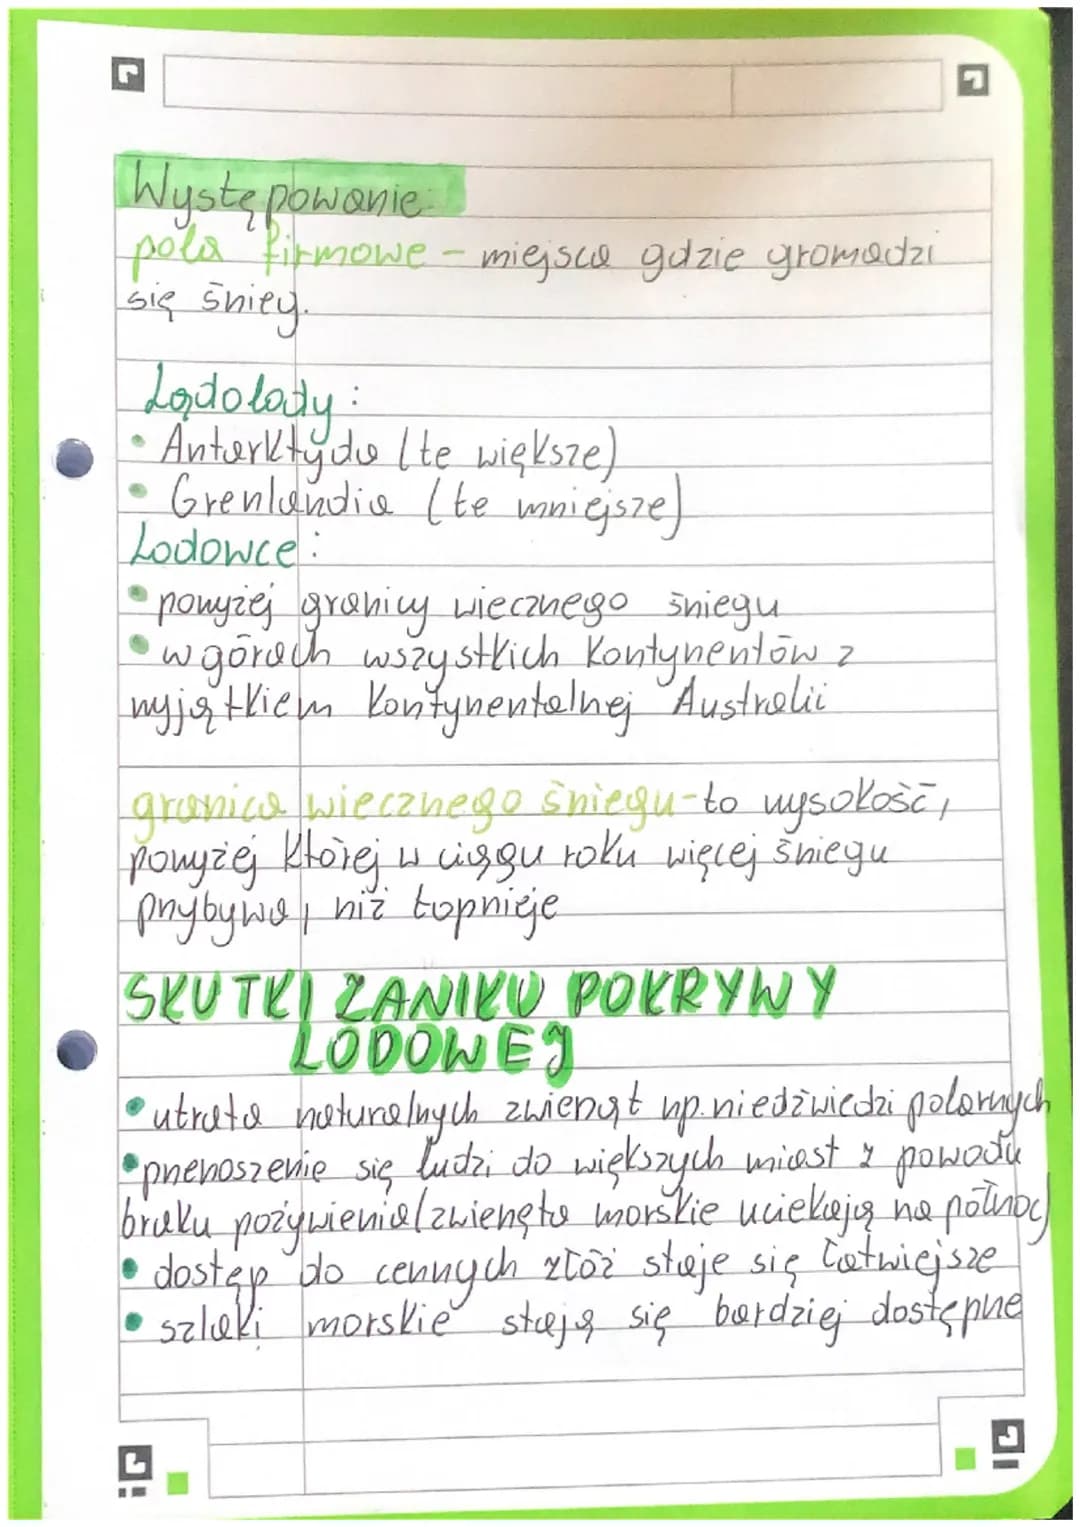 Występowanie:
pola firmowe - miejsca gdzie gromadzi
się śnieg.
Lądolody:
• Antarktyda (te większe)
• Grenlandia (te mniejsze)
Lodowce:
• powyżej granicy wiecznego śniegu
• w górach wszystkich kontynentów z
wyjątkiem kontynentalnej Australii
granica wiecznego śniegu - to wysokość,
powyżej której w ciągu roku więcej śniegu
przybywa, niż topnieje
SKUTKI ZANIKU POKRYWY
LODOWEJ
• utrata naturalnych zwierząt np. niedźwiedzi polarnych
• przenoszenie się ludzi do większych miast z powodu
braku pożywienia (zwierzęta morskie uciekają na północ)
• dostęp do cennych złóż staje się łatwiejsze
• szlaki morskie stają się bardziej dostępne